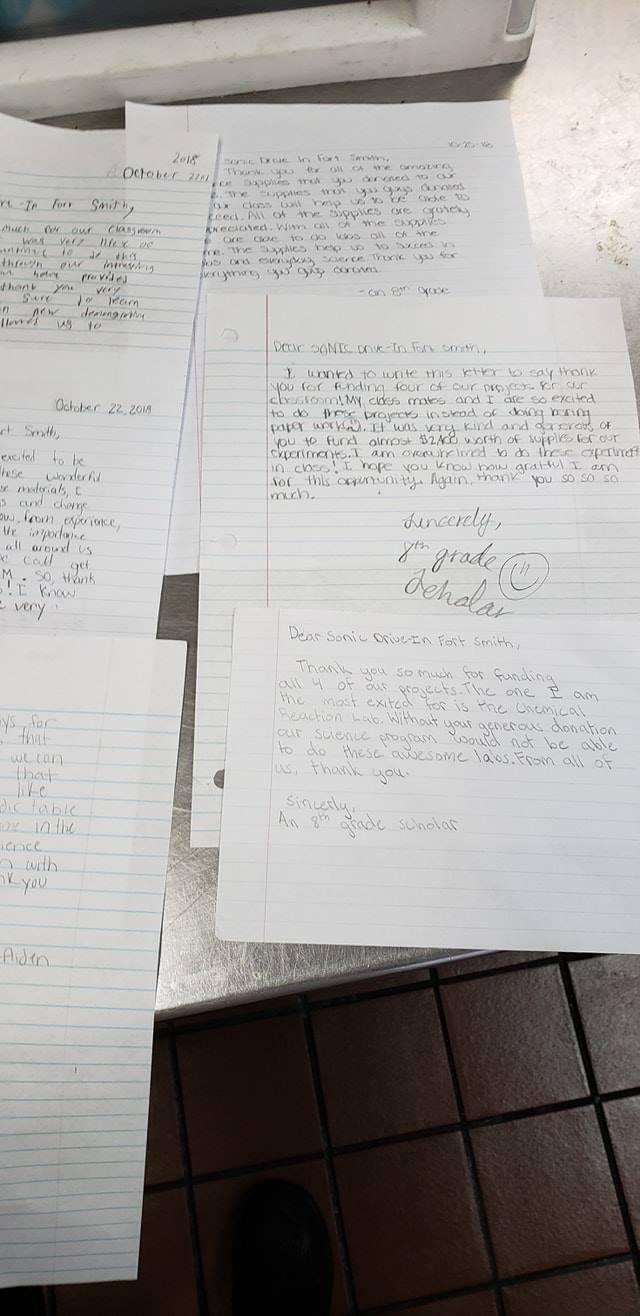 2018
October 22nd
re-In Fort Smith,
much for our classroom
was very nice of
continue to do this
through our interesting
have provided
thank you very
sure to learn
new
allowed us to
10-25-18
Sonic Drive In Fort Smith,
Thank you for all of the amazing
ce supplies that you donated to our
. The supplies that you guys donated
our class will help us to be able to
ceed. All of the supplies are grately
preciated. With all of the supplies
are able to do labs all of the
me. The supplies help us to succeed in
bs and everyday science. Thank you for
erything you guys donated.
-an 8th grade
October 22, 2018
rt Smith,
excited to be
these wonderful
se materials, I
s and change
ow, from experience,
the importance
all around us
e could get
M. So, thank
! I know
e very
ys for
, that
we can
that
like
dic table
me in the
ience
n with
nk you
Aiden
Dear SONIC Drive-In Fort Smith,
I wanted to write this letter to say thank
you for funding four of our projects for our
classroom! My class mates and I are so excited
to do these projects instead of doing boring
paper work. It was very kind and generous of
you to fund almost $2,400 worth of supplies for our
experiments. I am overwhelmed to do these experiments
in class! I hope you know how gratful I am
for this opportunity. Again, thank you so so so
much.
Sincerely,
8th grade
Scholar
Dear Sonic Drive-In Fort Smith,
Thank you so much for funding
all 4 of our projects. The one I am
the most exited for is the Chemical
Reaction Lab. Without your generous donation
our science program would not be able
to do these awesome labs. From all of
us, thank you.
Sincerly,
An 8th grade scholar